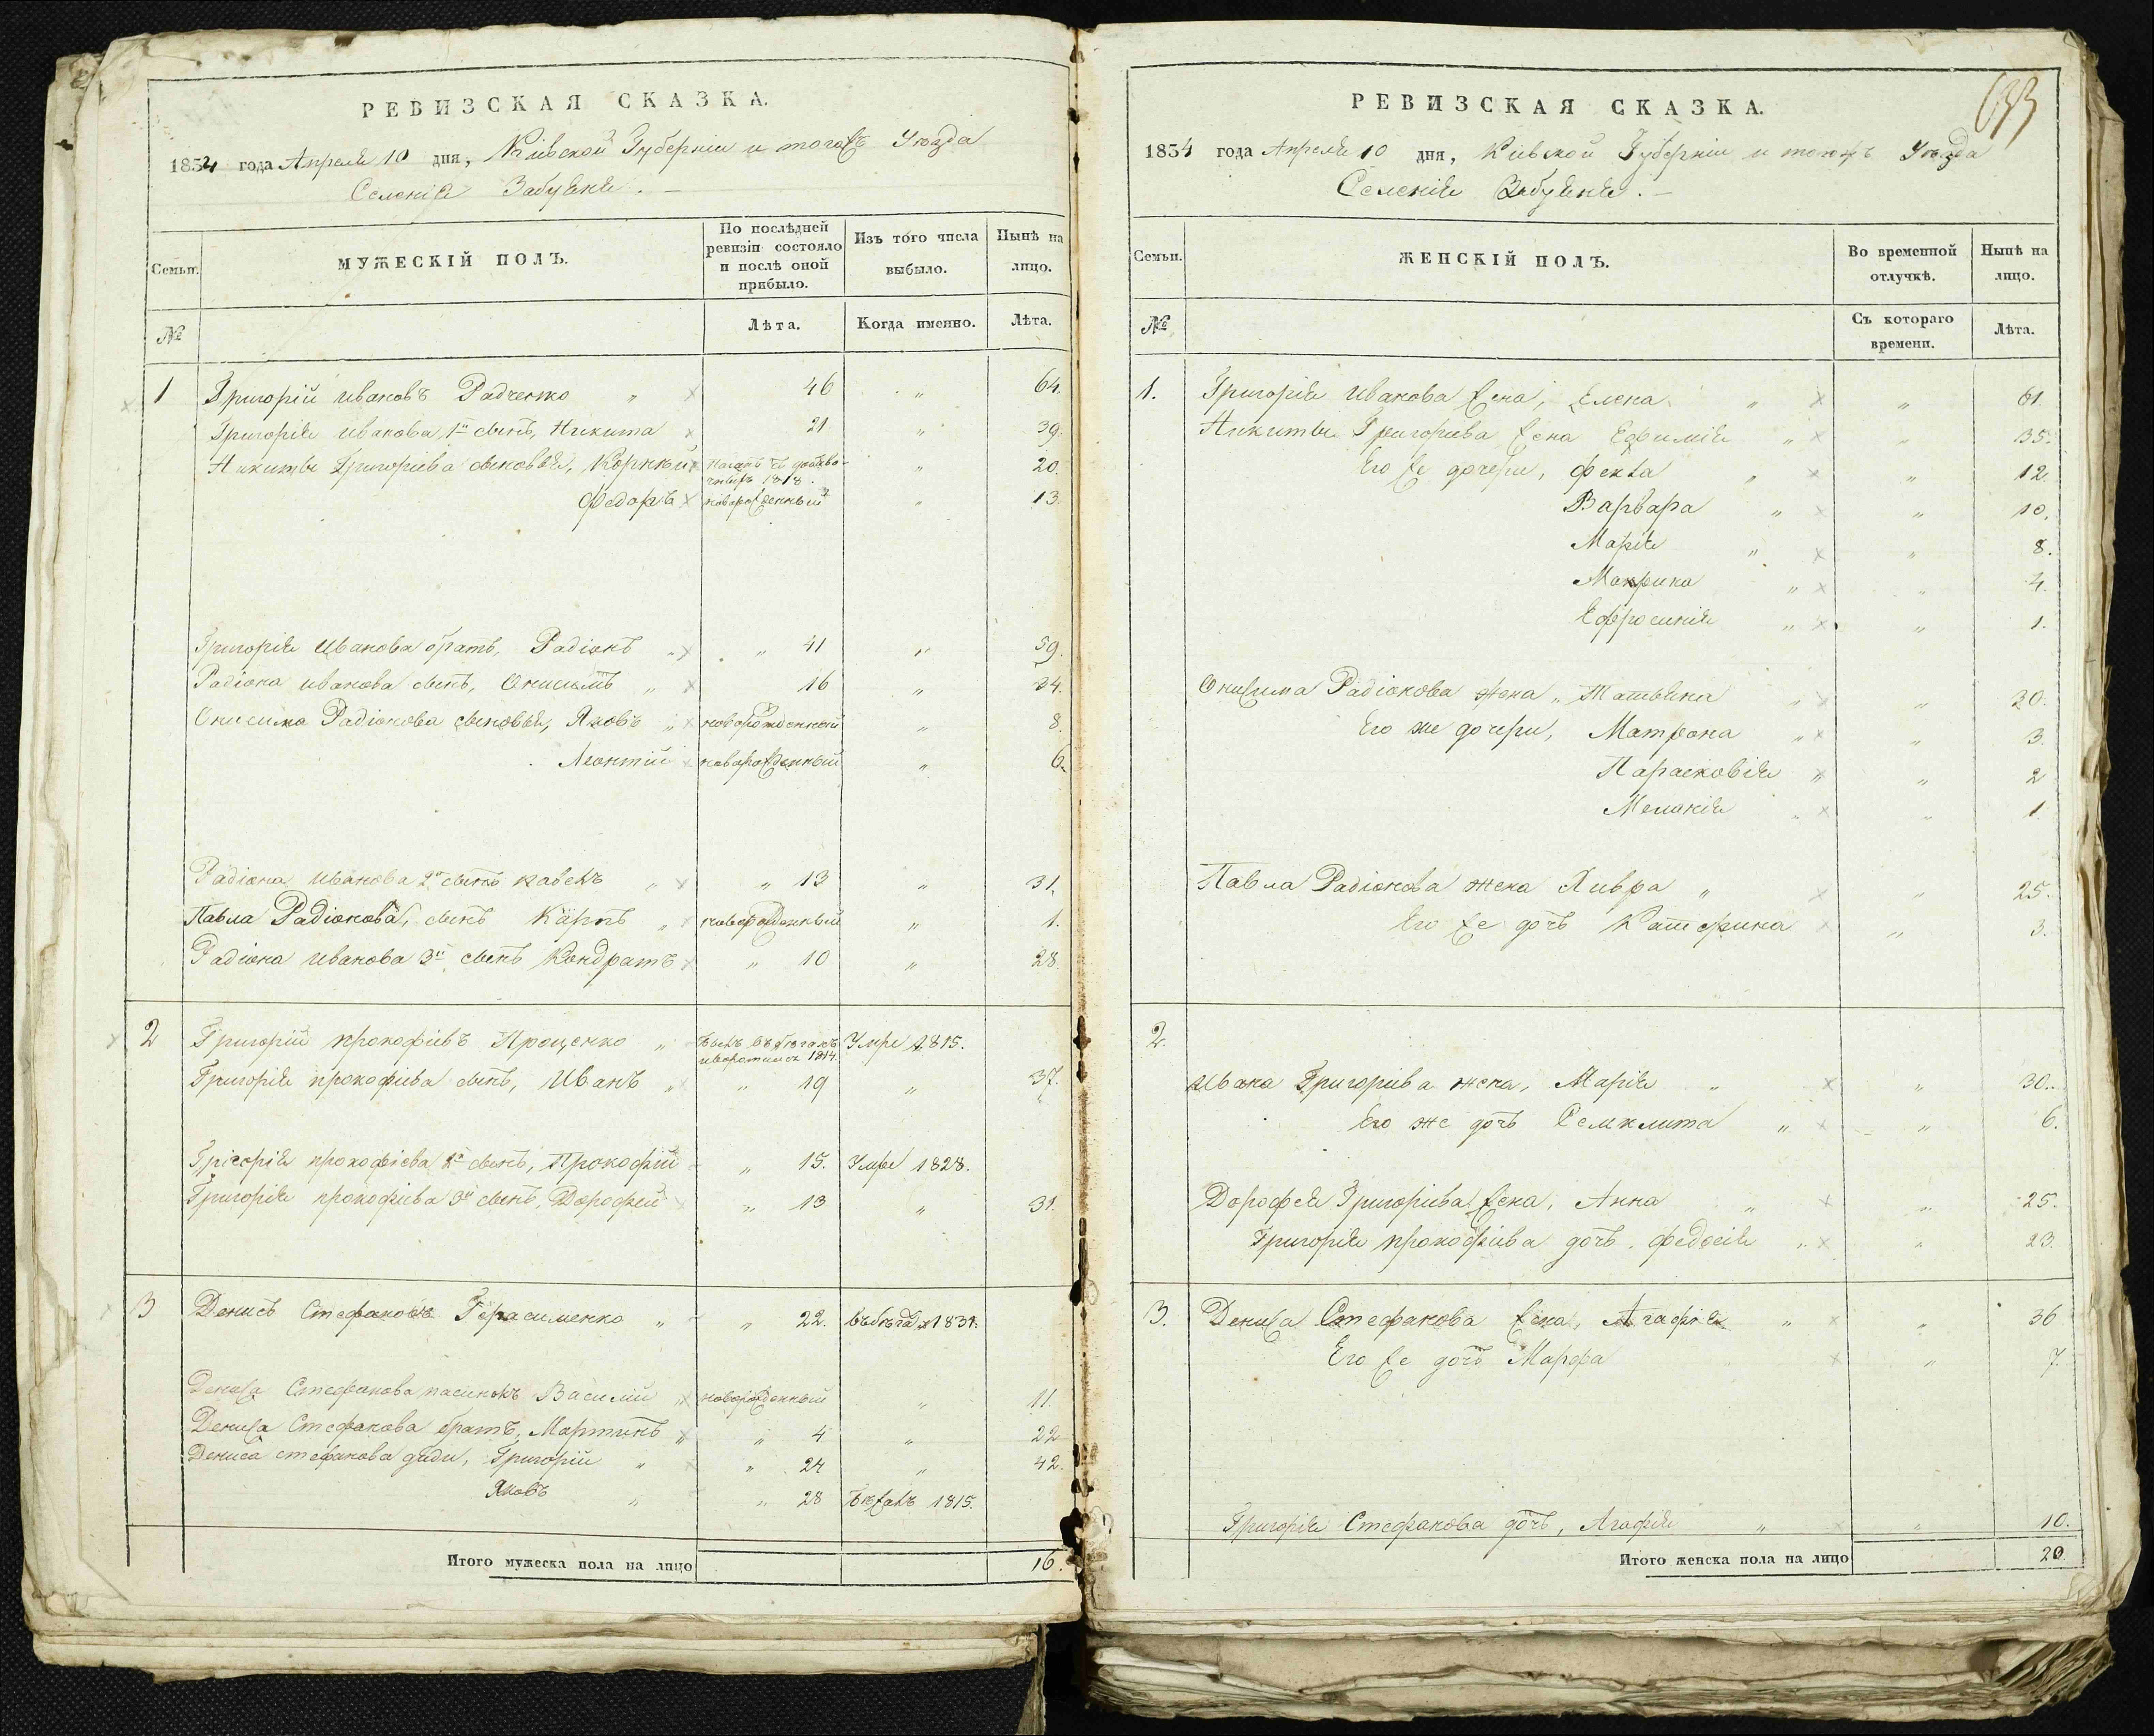 РЕВИЗСКАЯ СКАЗКА.
1834 года Апреля 10 дня, Кіевской Губерніи и тогожъ Уѣзда
Селенія Забуянья.
Семьи. МУЖЕСКІЙ ПОЛЪ. По послѣдней ревизіи состояло и послѣ оной прибыло. Изъ того числа выбыло. Нынѣ на лицо.
№ Лѣта. Когда именно. Лѣта.
1 Григорій Ивановъ Радченко „ 46 „ 64.
Григорія Иванова 1й сынъ, Никита 21. „ 39.
Никиты Григоріева сыновья, Корнѣй 1818. „ 20.
Федоръ новорожденный „ 13.
Григорія Иванова братъ, Радіонъ „ „ 41 „ 59.
Радіона Иванова сынъ, Онисимъ „ 16 „ 34.
Онисима Радіонова сыновья, Яковъ „ новорожденный „ 8.
Леонтій новорожденный „ 6.
Радіона Иванова 2й сынъ Павелъ „ „ 13 „ 31.
Павла Радіонова, сынъ Карпъ „ новорожденный „ 1.
Радіона Иванова 3й сынъ Кондратъ „ 10 „ 28.
2 Григорій Прокофіевъ Проценко „ былъ въ бѣгахъ и воротился 1814. Умре 1815.
Григорія Прокофіева сынъ, Иванъ „ „ 19 „ 37.
Григорія Прокофіева 2й сынъ, Прокофій „ 15. Умре 1828.
Григорія Прокофіева 3й сынъ, Дорофей „ 13 „ 31.
3 Денисъ Стефановъ Герасименко „ „ 22. въ бѣгахъ 1831.
Дениса Стефанова пасинокъ Василій „ новорожденный „ 11.
Дениса Стефанова братъ, Мартинъ „ „ 4 „ 22
Дениса Стефанова дяди, Григорій „ „ 24 „ 42.
Яковъ „ „ 28 Бѣжалъ 1815.
Итого мужеска пола на лицо 16.
633
РЕВИЗСКАЯ СКАЗКА.
1834 года Апреля 10 дня, Кіевской Губерніи и тогожъ Уѣзда
Селенія Забуянья.
Семьи. ЖЕНСКІЙ ПОЛЪ. Во временной отлучкѣ. Нынѣ на лицо.
№ Съ котораго времени. Лѣта.
1. Григорія Иванова жена, Елена „ „ 61.
Никиты Григорьева жена Ефимія „ „ 35.
Его же дочери, Фекла „ „ 12.
Варвара „ „ 10.
Марія „ „ 8.
Макрина „ „ 4.
Ефросинія „ „ 1.
Онисима Радіонова жена „ Татьяна „ „ 30.
Его же дочери, Матрона „ „ 3
Парасковія „ „ 2
Меланія „ „ 1
Павла Радіонова жена Хивра „ „ 25.
Его же дочъ Катерина „ 3.
2.
Ивана Григоріева жена, Марія „ „ 30.
Его же дочъ Семклита „ „ 6.
Дорофея Григоріева жена, Анна „ „ 25.
Григорія Прокофіева дочъ, Федосія „ „ 23.
3. Дениса Стефанова жена, Агафія „ „ 36
Его же дочъ Марфа „ 7.
Григорія Стефанова дочъ, Агафія „ „ 10.
Итого женска пола на лицо 20.